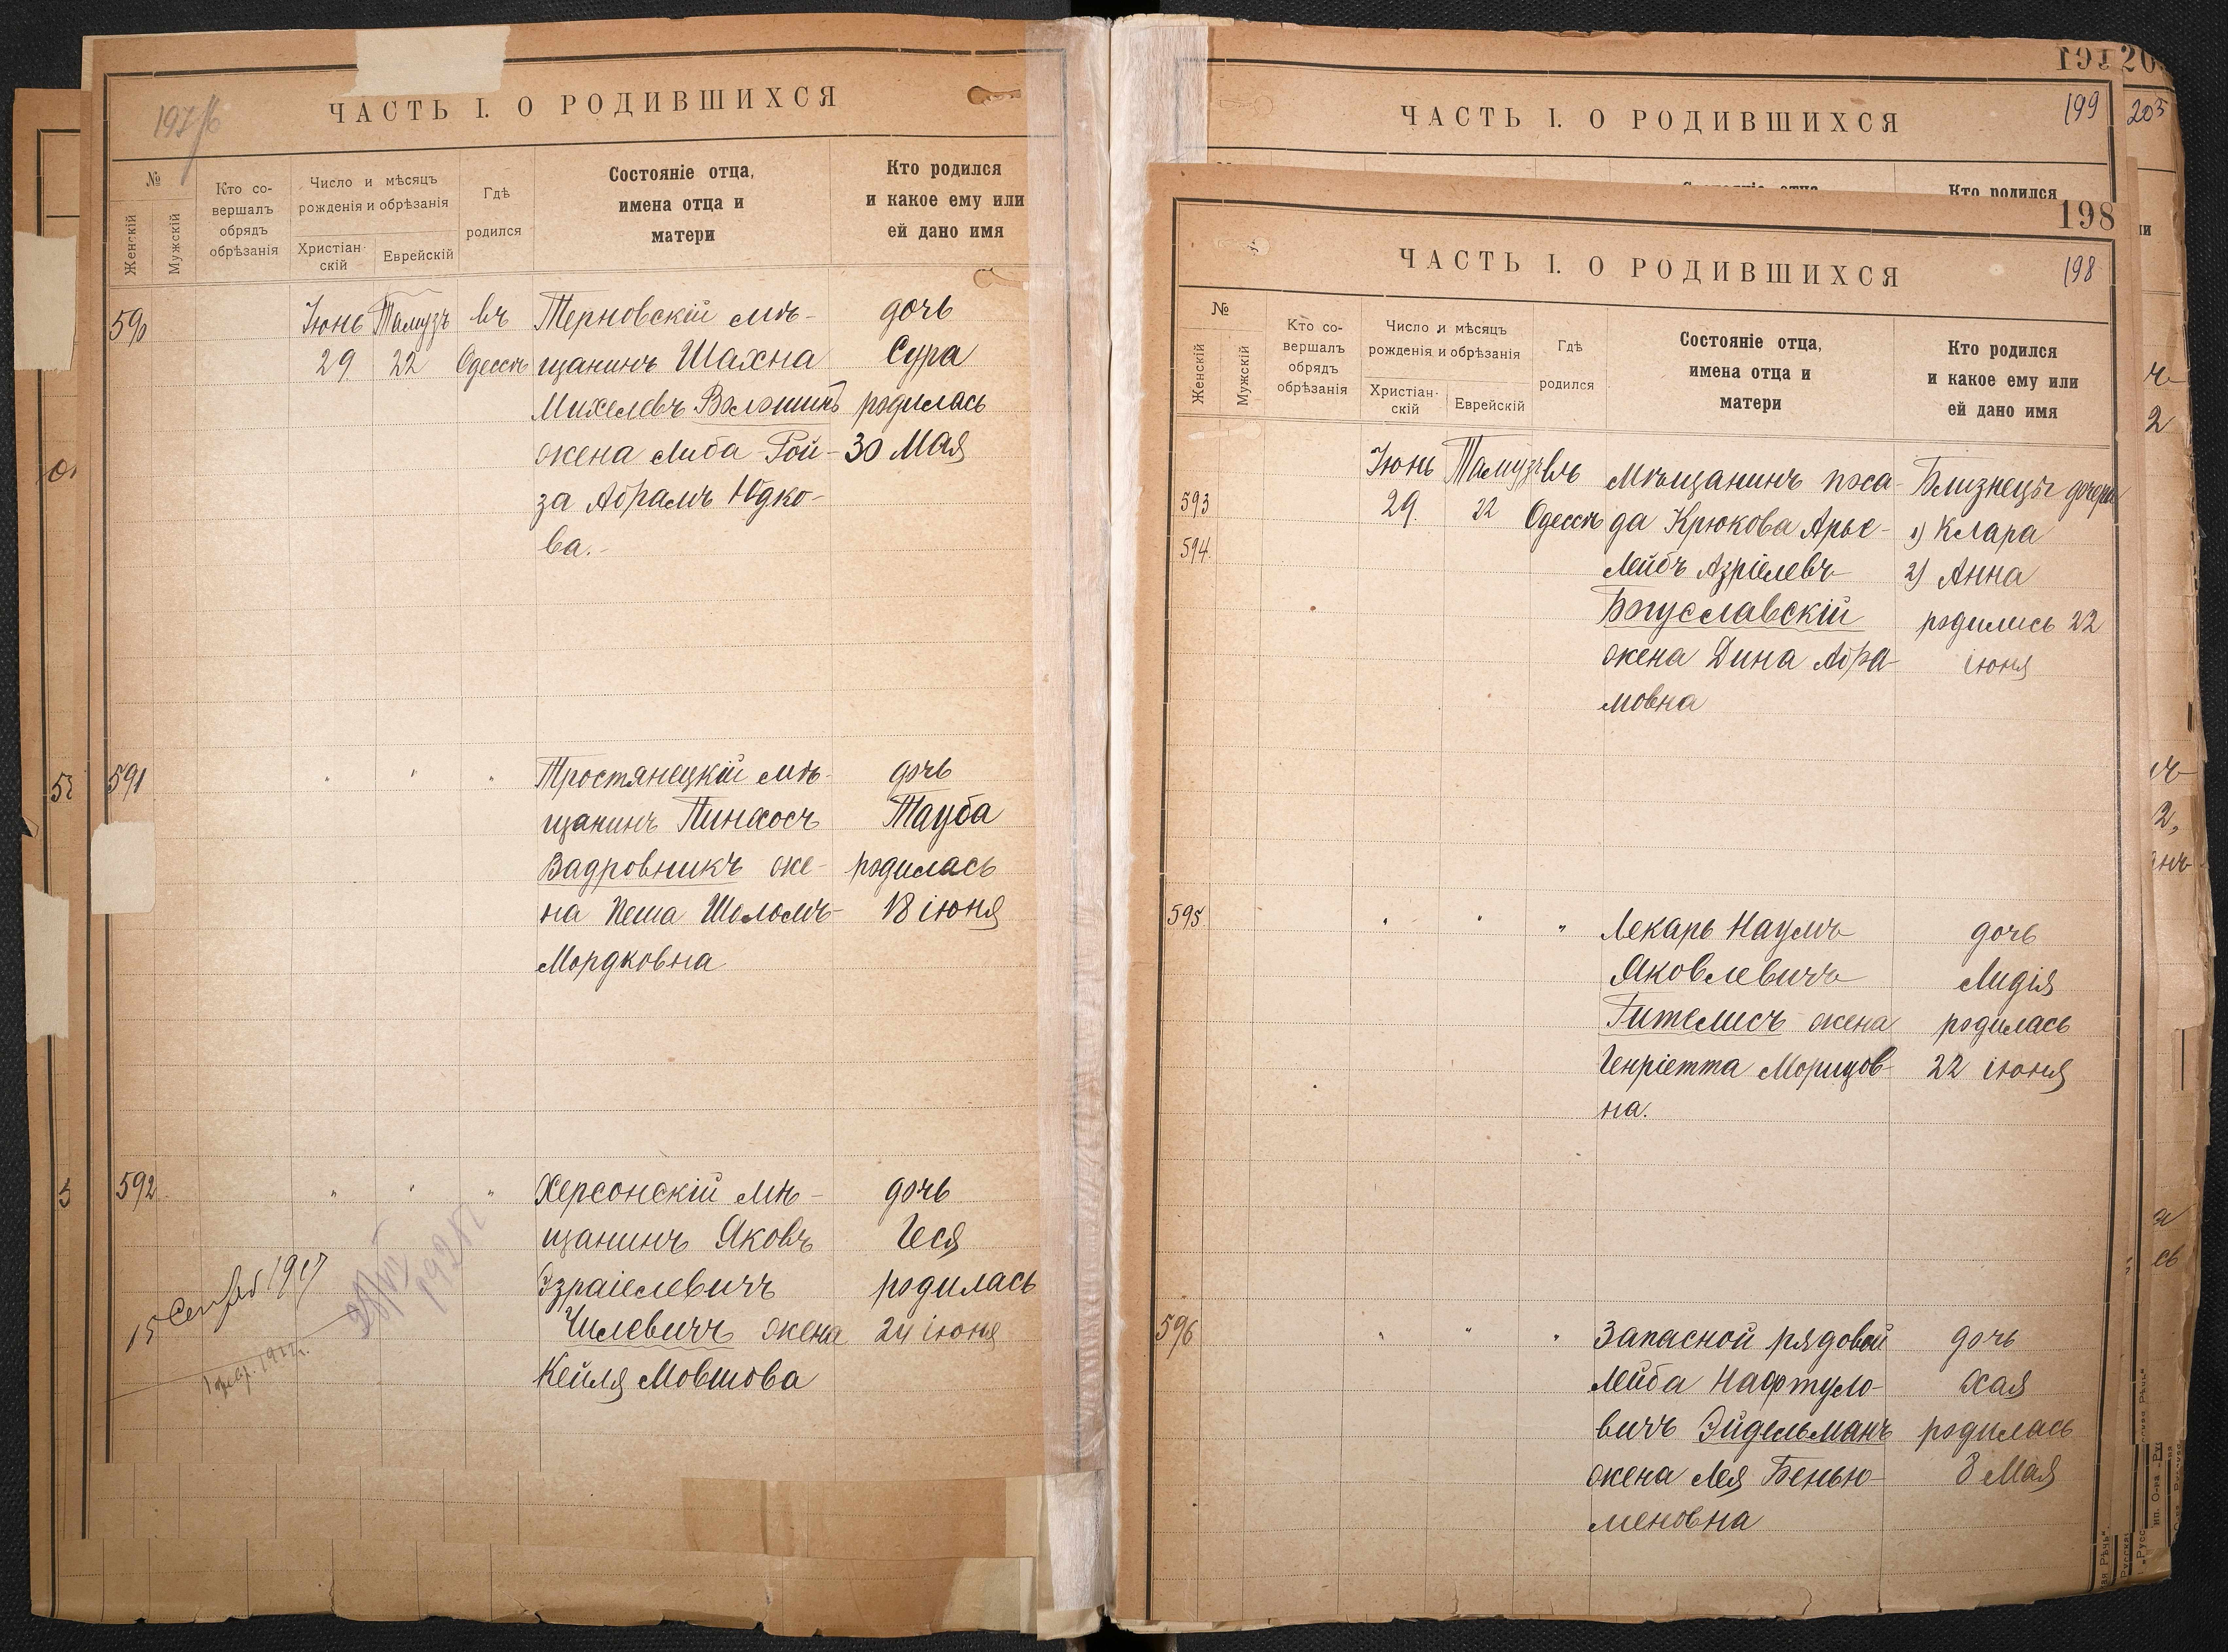 ЧАСТЬ I. О РОДИВШИХСЯ
№
Женскій
Мужскій
Кто со-
вершалъ
обрядъ
обрѣзанія
Число и мѣсяцъ
рожденія и обрѣзанія
Христіан-
скій
Еврейскій
Гдѣ
родился
Состояніе отца,
имена отца и
матери
Кто родился
и какое ему или
ей дано имя
590
Іюнь Тамузъ въ Терновскій мѣ- дочь
29 22 Одессѣ щанинъ Шахна Сура
Михелевъ Волошинъ родилась
жена Либа Рой- 30 Мая
за Абрамъ Юдко-
ва.
591 " " " Тростянецкій мѣ- дочь
щанинъ Пинхосъ Тауба
Вадровникъ же- родилась
на Песя Шоломъ- 18 іюня
Мордковна
592 " " " Херсонскій мѣ- дочь
щанинъ Яковъ Геся
Израіелевичъ родилась
Чилевичъ жена 24 іюня
Кейля Мовшова
15 1917
191
199
203
ЧАСТЬ I. О РОДИВШИХСЯ
Кто родился
198
198
ЧАСТЬ I. О РОДИВШИХСЯ
№
Женскій
Мужскій
Кто со-
вершалъ
обрядъ
обрѣзанія
Число и мѣсяцъ
рожденія и обрѣзанія
Христіан-
скій
Еврейскій
Гдѣ
родился
Состояніе отца,
имена отца и
матери
Кто родился
и какое ему или
ей дано имя
Іюнь Тамузъ въ Мѣщанинъ поса- Близнецы дочери
593 29. 22 Одессѣ да Крюкова Арье- 1) Клара
594. Лейбъ Азріелевъ 2) Анна
Богуславскій родились 22
жена Дина Абра- іюня
мовна
595. " " " Лекарь Наумъ дочь
Яковлевичъ Лидія
Гителисъ жена родилась
Генріетта Морицов- 22 іюня
на.
596 " " " Запасной рядовой дочь
Лейба Нафтуло- Хая
вичъ Эйдельманъ родилась
жена Лея Бенью- 8 Мая
меновна